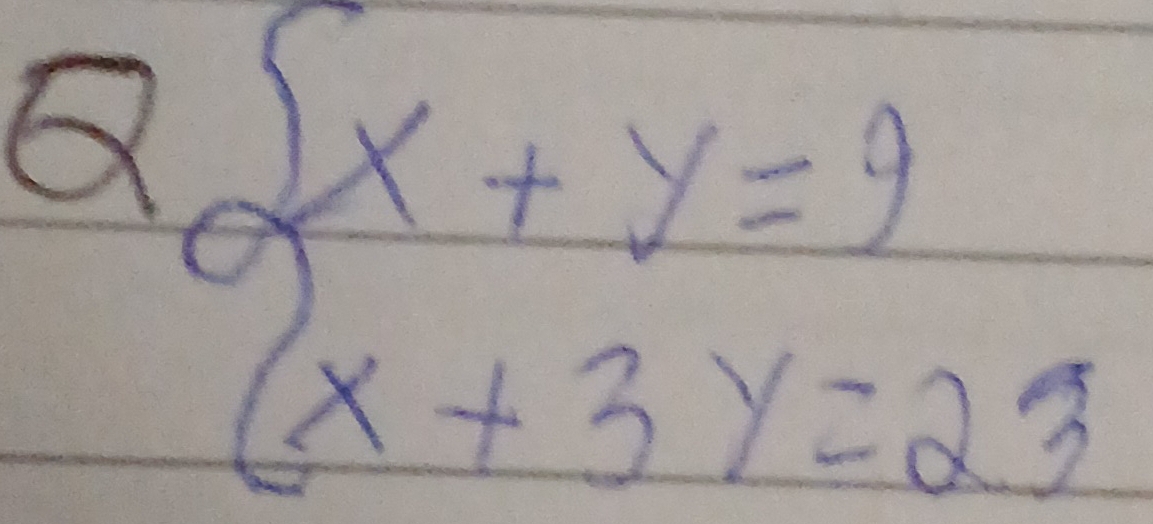 Q
x + y = 9
x + 3y = 23